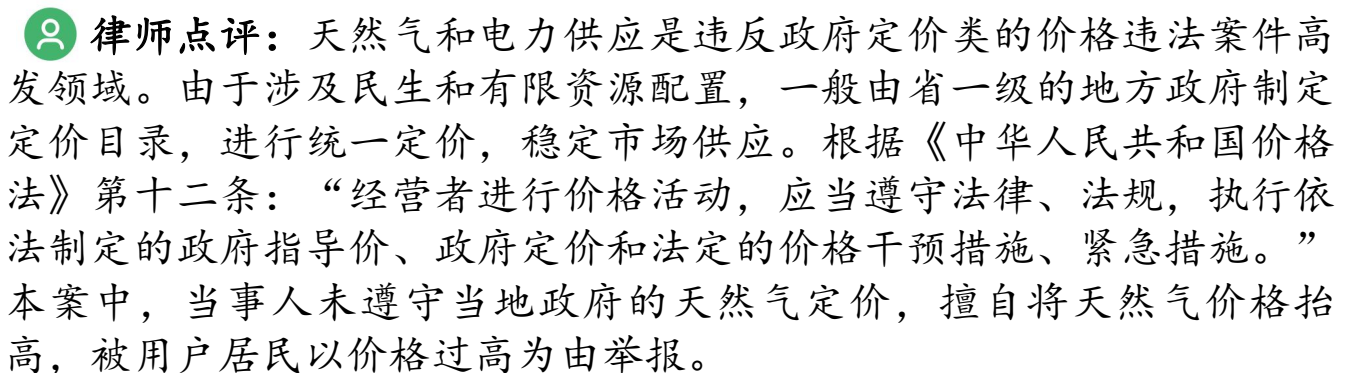 律师点评：天然气和电力供应是违反政府定价类的价格违法案件高
发领域。由于涉及民生和有限资源配置，一般由省一级的地方政府制定
定价目录，进行统一定价，稳定市场供应。根据《中华人民共和国价格
法》第十二条：“经营者进行价格活动，应当遵守法律、法规，执行依
法制定的政府指导价、政府定价和法定的价格干预措施、紧急措施。”
本案中，当事人未遵守当地政府的天然气定价，擅自将天然气价格抬
高，被用户居民以价格过高为由举报。